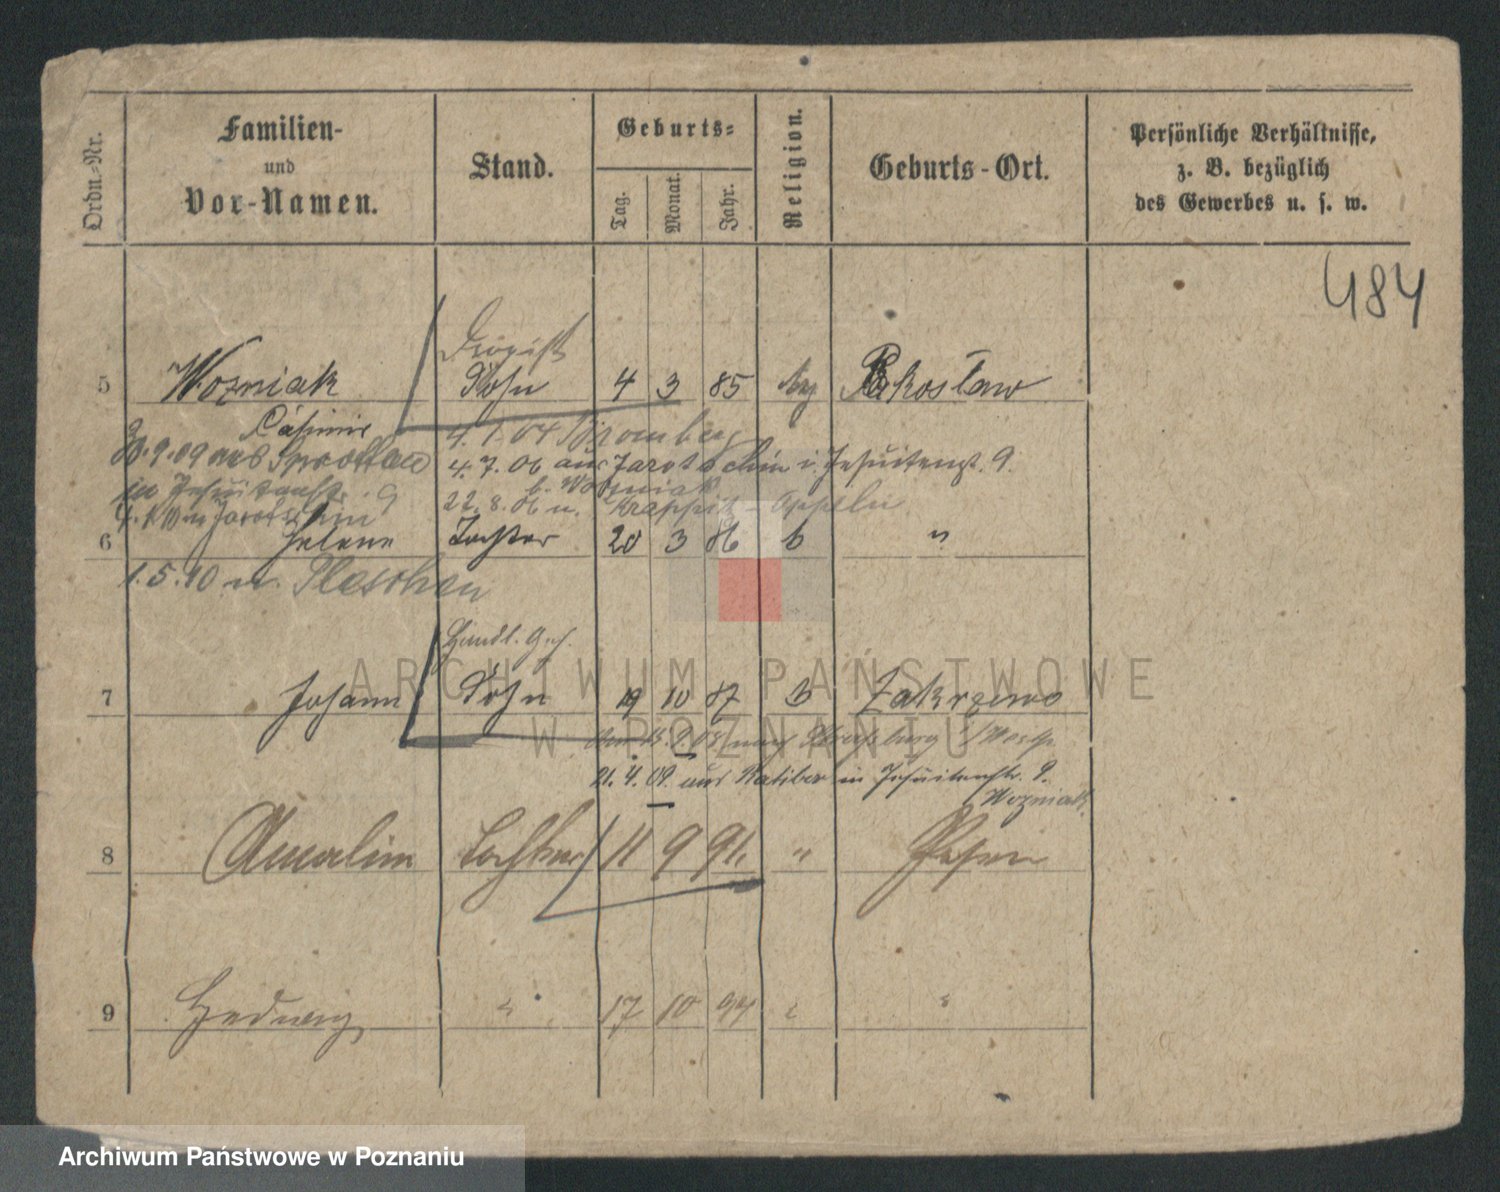 Ordn.-Nr.
Familien-
und
Vor-Namen.
Stand.
Geburts-
Tag.
Monat.
Jahr.
Religion.
Geburts-Ort.
Persönliche Verhältnisse,
z. B. bezüglich
des Gewerbes u. s. w.
484
5 Wozniak Sohn 4 3 85 Pakosław
Casimir
4. 1. 04 Bromberg
9. 09 aus Sprottau
4. 7. 06 aus Jarotschin i. Jesuitenst. 9.
b. Wozniak
in Jesuitenstr. 9
22. 8. 06 n. Krappitz - Oppeln
n Jarotschin
6 Helene Tochter 20 3 86 b "
1. 5. 10 n. Pleschen
Handl. Geh.
7 Johann Sohn 19 10 87 b Zakrzewo
21. 4. 09. aus Ratibor in Jesuitenstr. 9.
Wozniak
8 Tochter 11 9 91. " Posen
9 Hedwig " 17 10 94 " "
ARCHIWUM PAŃSTWOWE
W POZNANIU
Archiwum Państwowe w Poznaniu